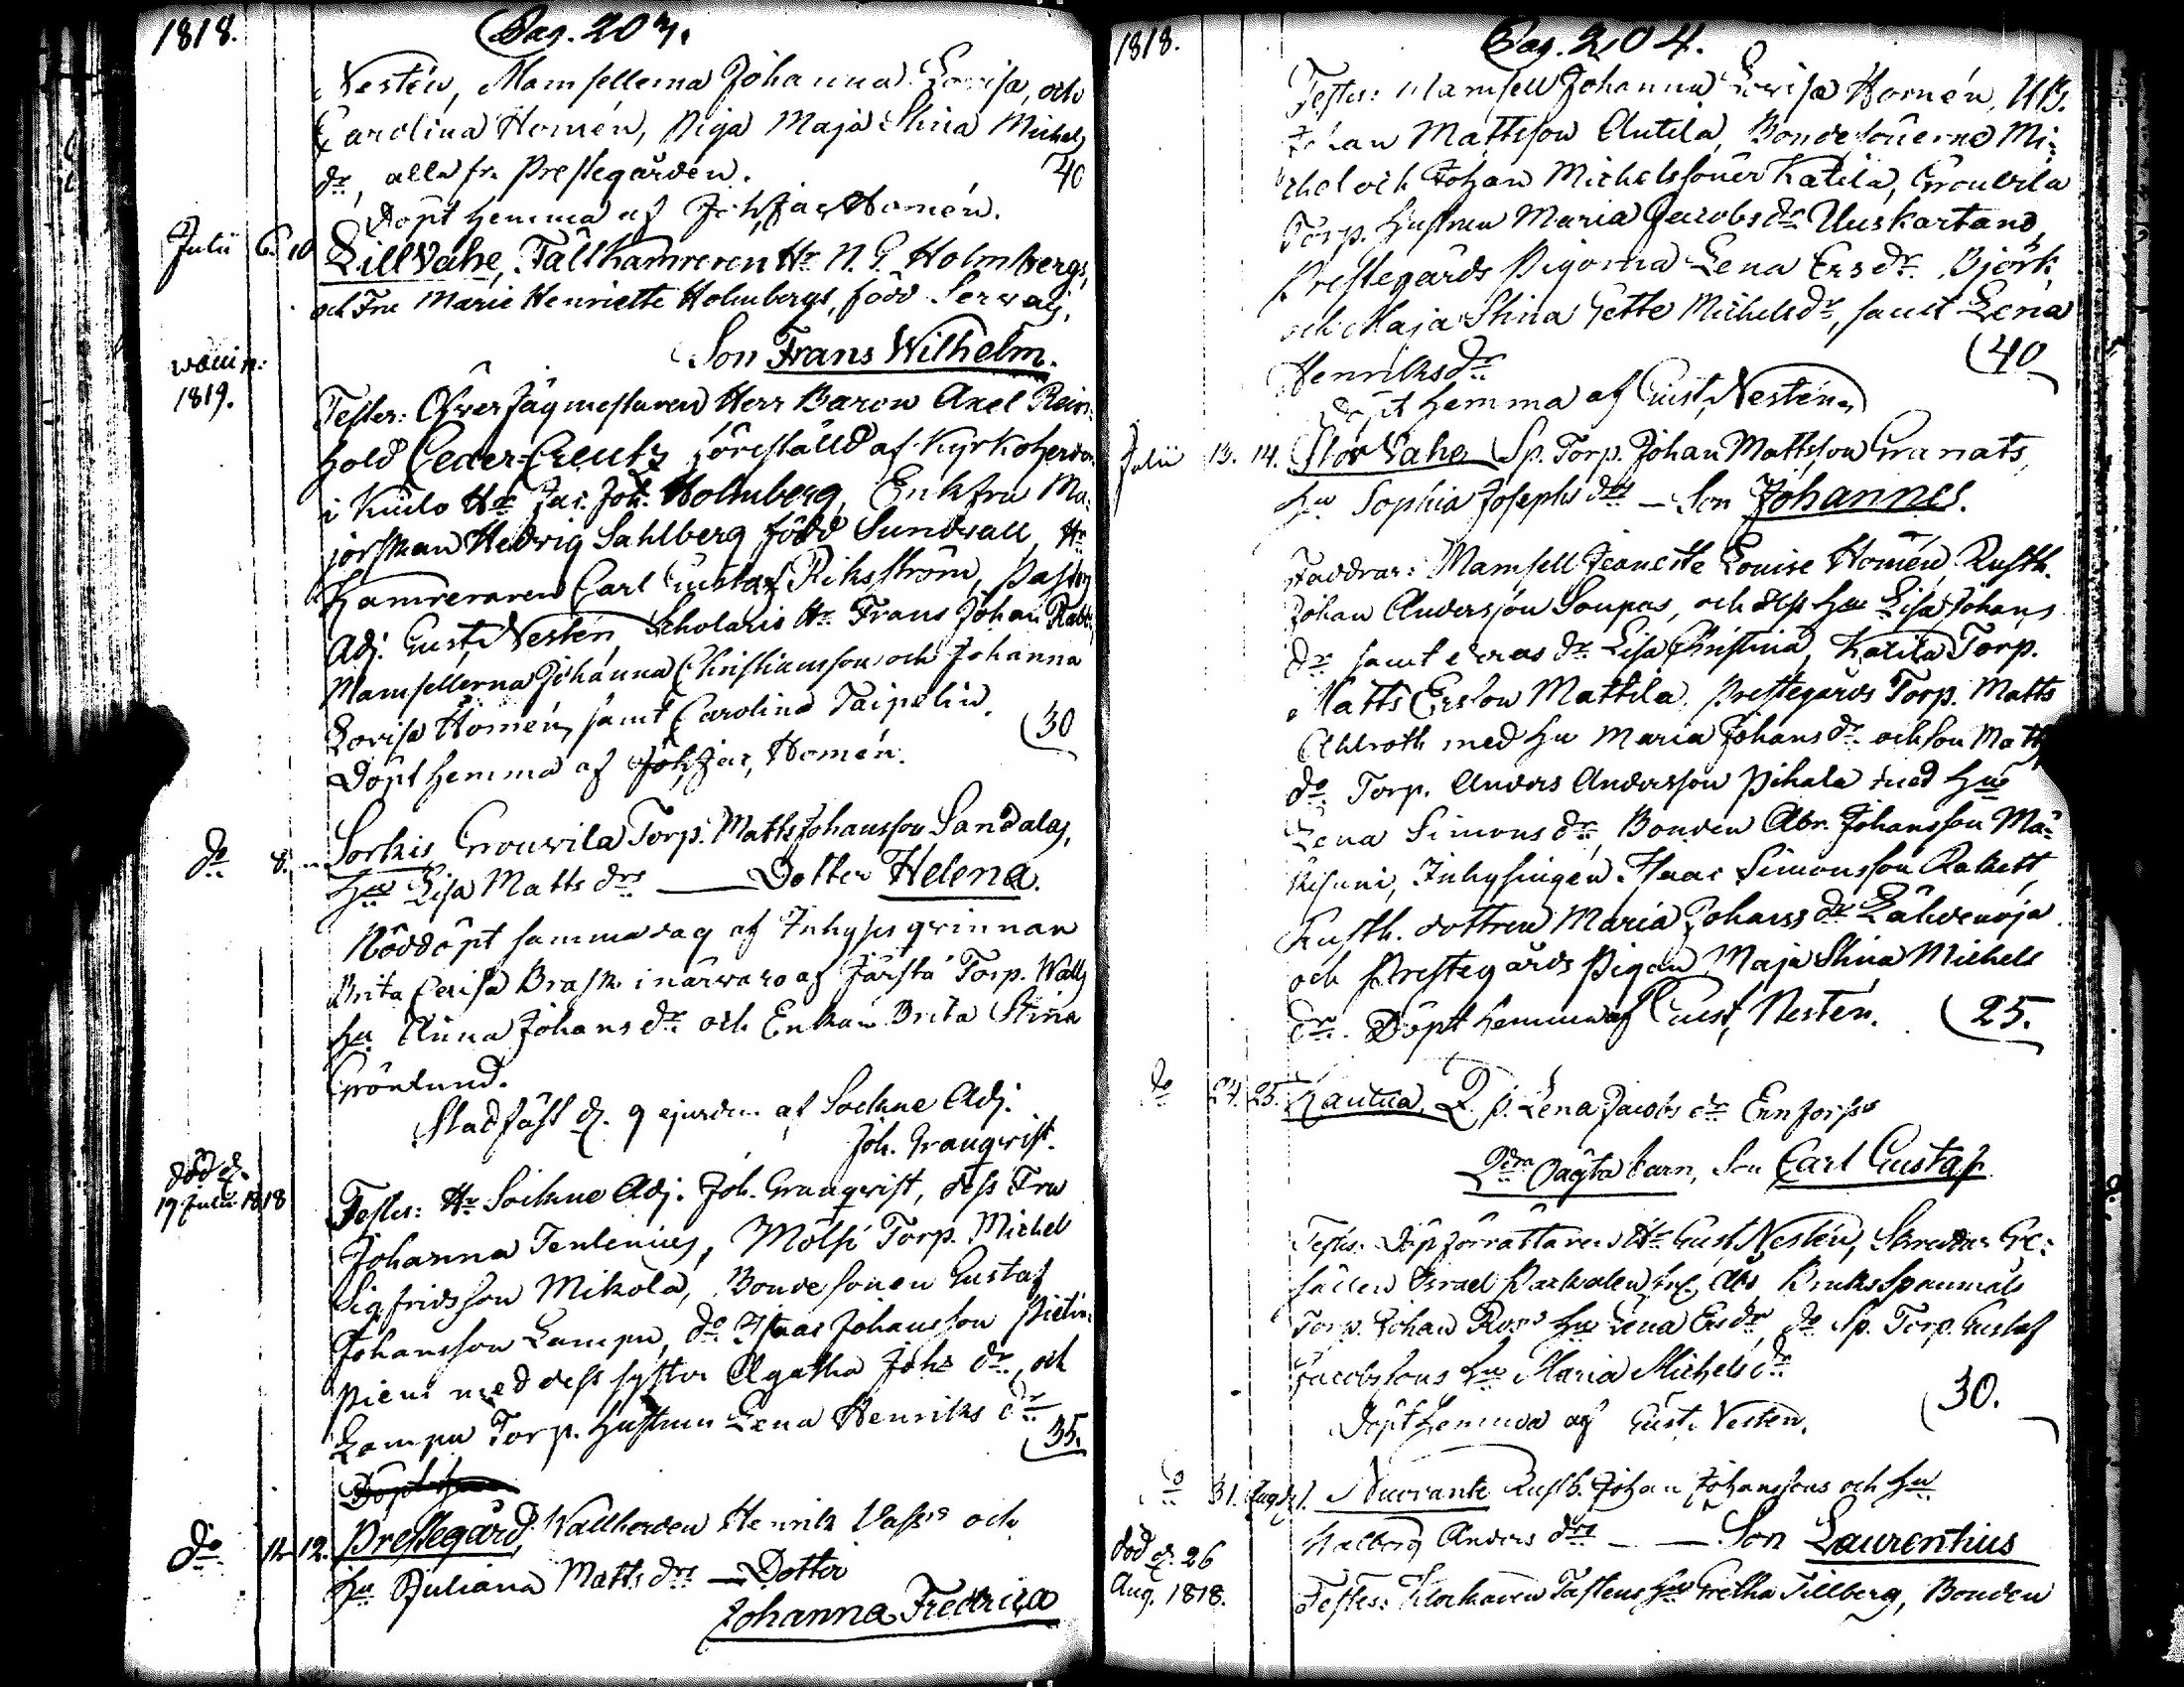 1818. Pag. 203.
Nestén, Mamsellerna Johanna Lovisa, och
Carolina Homén, Piga Maja Stina Michels
dr, alla fr. Prestegården. 40
Döpt hemma af Joh. Jac. Homén.
Julii 6. 10 Lill Vahe, Fältkamreren Hr N. G. Holmbergs,
och Fru Marie Henriette Holmbergs, född
Son Frans Wilhelm.
1819.
Testes: Öfverjägmästaren Herr Baron Axel Rein-
hold Ceder-Creutz föreställd af Kyrkoherden
i Kiulo Hr Jac. Joh. Holmberg, Enkfru Ma-
jorskan Hedvig Sahlberg född Sundvall, Hr
Kamreraren Carl Gustaf Riksström, Past.
Adj. Gust. Nestén, Scholaris Hr Frans Johan
Mamsellerna Johanna Christiansson och Johanna
Lovisa Homén, samt Carolina Taipelin. 30
Döpt hemma af Joh. Jac. Homén.
do 8. Sorkis Grouvila Torp. Matts Johansson Sandalas,
Hu Lisa Matts drs — Dotter Helena.
Nöddöpt samma dag af Inhyses qvinnan
Brita Brask i närvaro af Järstä Torp.
Hu Anna Johans dr och Enkan Brita Stina
Grönlund.
Stadfäst d. 9 ejusdem af Sockne Adj.
Joh. Granqvist.
död d.
19 Julii 1818
Testes: Hr Sockne Adj. Joh. Granqvist, dess Fru
Johanna Tenlenius, Mölsi Torp. Michel
Sigfridsson Mikola, Bondesonen Gustaf
Johansson Lampu, do Isaac Johansson
Pieni med dess syster Agatha Johs dr, och
Lampu Torp. hustrun Lena Henriks dr 35.
Döpt
do 12 12. Prestegård, Vallherden Henrik och
Hu Juliana Matts drs — Dotter
Johanna Fredrica
1818. Pag. 204.
Testes: Mamsell Johanna Lovisa Homén, UB.
Johan Mattsson Antila, Bondesönerna Mi-
chel och Johan Michelssöner Katila, Grouvila
Torp. hustrun Maria Jacobs dr Uuskartano,
Prestegårds Pigorna Lena Ersdr Björk
och Maja Stina Gette Michelsdr, samt Lena
Henriksdr 40
Döpt hemma af Gust. Nestén
Julii 13. 14. Stor Vahe Sp. Torp. Johan Mattsson Granats,
Hu Sophia Josephs drs — Son Johannes.
Faddrar: Mamsell Jeanette Louise Homén, Rusth.
Johan Andersson Soupas, och dess Hu Lisa Johans
dr samt deras dr Lisa Christina, Katila Torp.
Matts Ersson Mattila, Prestegårds Torp. Matts
Ahlroth med Hu Maria Johans dr och son Matts
do Torp. Anders Andersson Pihala med Hu
Lena Simons dr, Bonden Abr. Johansson Mä-
kisuni, Inhysingen Isaac Simonsson Rakett,
Rusth. dottren Maria Johans dr Lähdenoja
och Prestegårds Pigan Maja Stina Michels
dr. Döpt hemma af Gust. Nestén. 25.
do 24. 25. Kautua, Q. p. Lena Jacobs dr
Qdra oägta barn, Son Carl Gustaf
Testes: Döpförrättaren Hr Gust Nestén, Skreddar Ge-
sällen Israel
Torp. Johan Hu Lena Ersdr, do Sp. Torp. Gustaf
Jacobssons Hu Maria Michels dr 30.
Döpt hemma af Gust. Nestén.
do 31. Aug. 1. Naurante Rusth. Johan Johanssons och Hu
Walborg Anders drs — Son Laurentius
död d. 26
Aug. 1818.
Testes: Klockaren Tastens Hu Gretha Tillberg, Bonden